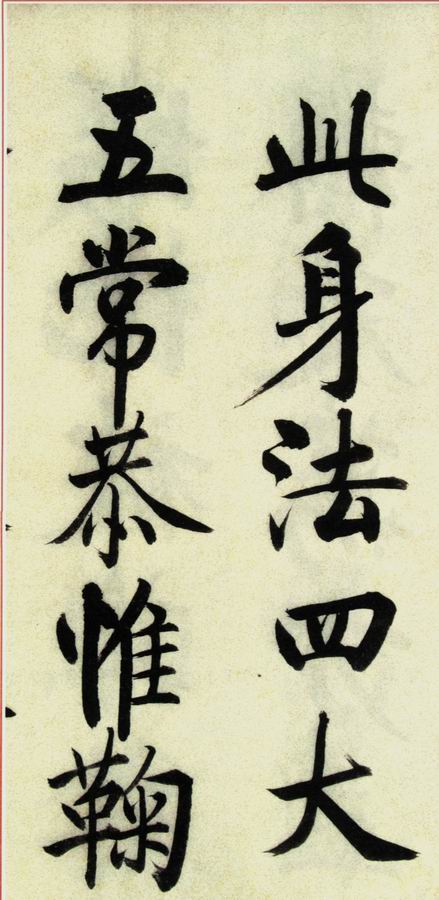 此身法四大
五常恭惟鞠